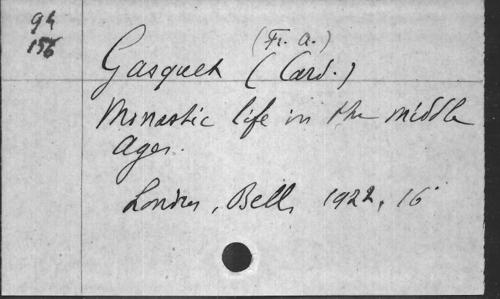 94
156
(Fr. a.)
Gasquet (Card.)
Monastic life in the middle
ages.
Londres, Bell, 1922, 16°